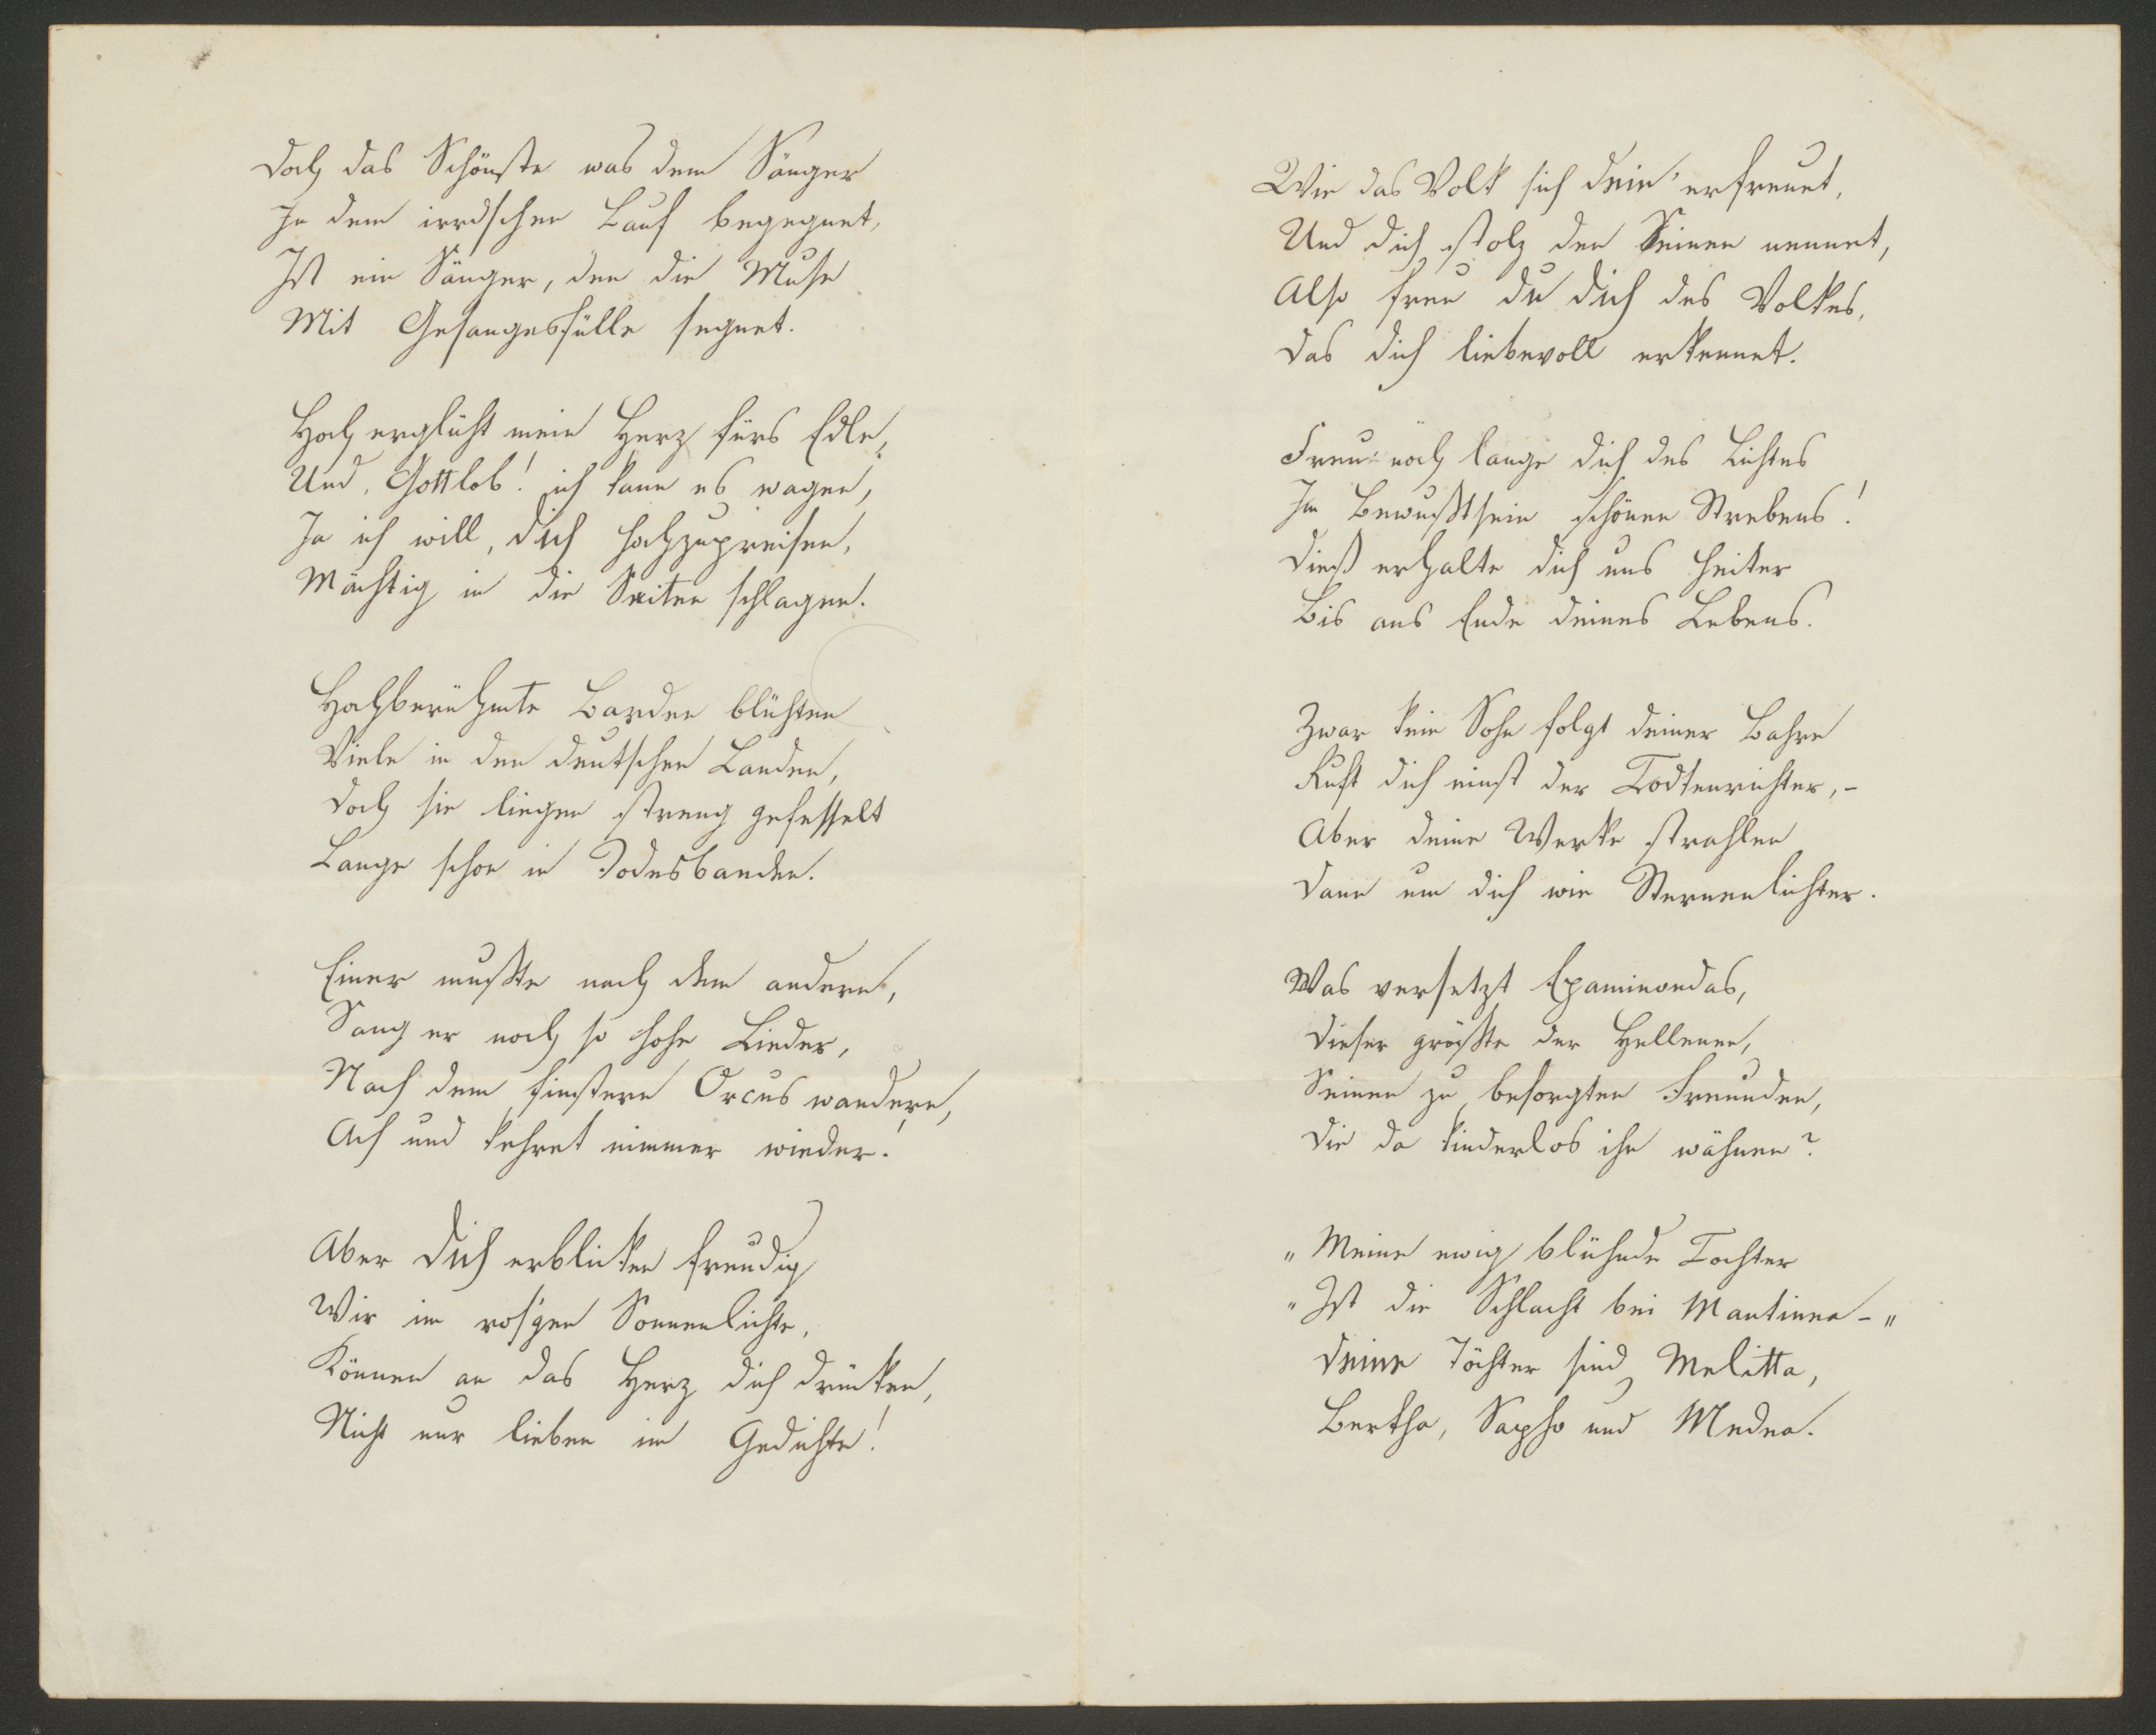 Doch das Schönste was dem Sänger
In dem irrd'schen Lauf begegnet,
Ist ein Sänger, den die Muse
Mit Gesangesfülle segnet.
Hoch erglüht mein Herz fürs Edle,
Und, Gottlob! ich kann es wagen,
Ja ich will, dich hochzupreisen,
Mächtig in die Saiten schlagen.
Hochberühmte Barden blühten
Viele in den deutschen Landen,
Doch sie liegen streng gefesselt
Lange schon in Todesbanden.
Einer mußte nach dem andern,
Sang er noch so hohe Lieder,
Nach dem finstern Orcus wandern,
Ach und kehret nimmer wieder!
Aber dich erblicken freudig
Wir im ros'gen Sonnenlichte,
Können an das Herz dich drücken,
Nicht nur lieben im Gedichte!
Wie das Volk sich dein' erfreuet,
Und dich stolz den Seinen nennet,
Also freu du dich des Volkes,
Das dich liebevoll erkennet.
Freu' noch lange dich des Lichtes
Im Bewußtsein schönen Strebens!
Dieß erhalte dich uns heiter
Bis ans Ende deines Lebens.
Zwar kein Sohn folgt deiner Bahre
Ruft dich einst der Todtenrichter, –
Aber deine Werke strahlen
Dann um dich wie Sternenlichter.
Was versetzt Epaminondas,
Dieser größte der Hellenen,
Seinen zu besorgten Freunden,
Die da kinderlos ihn wähnen?
„Meine ewig blühnde Tochter
„Ist die Schlacht bei Mantinea – "
Deine Töchter sind Melitta,
Bertha, Sapho und Medea.